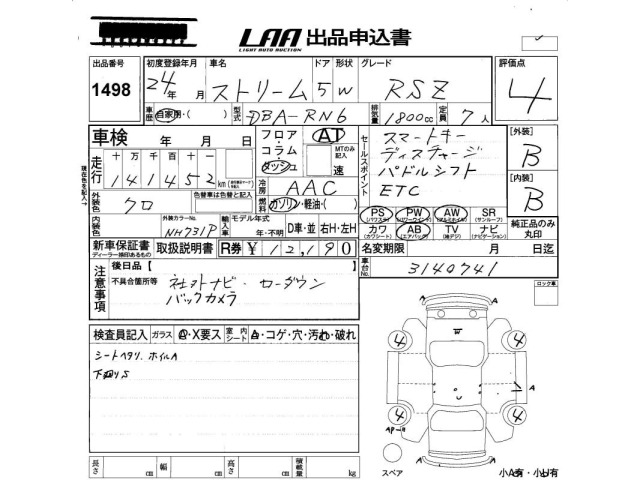 LAA 出品申込書
LIGHT AUTO AUCTION
出品番号 初度登録年月 車名 ドア 形状 グレード 評価点
1498 24年 月 ストリーム 5 W RSZ 4
車歴 自家用・( ) 型式 DBA-RN6 排気量 1800cc 定員 7人
車検 年 月 日
フロア・コラム・ダッシュ AT MTのみ記入 速
セールスポイント スマートキー
ディスチャージ
パドルシフト
ETC
[外装] B
[内装] B
走行 十万千百十一
141452 km
冷房 AAC
燃料 ガソリン・軽油・( )
外装色 クロ 色替車は色替と記入
内装色 外装カラーNo. NH731P 輸入車 モデル年式 年・不明 D車・並 右H・左H
PS (パワステ) PW (パワーウインド) AW (アルミホイル) SR (サンルーフ)
カワ (カワシート) AB (エアバック) TV (純正デジ) ナビ (ナビゲーション)
純正品のみ丸印
新車保証書 取扱説明書 R券 ¥12,190
ディーラー捺印あるもの
名変期限 月 日迄
車台No. 3140741
注意事項 後日品 [ ]
不具合箇所等 社外ナビ・ローダウン
バックカメラ
ロック車
検査員記入 ガラス Ⓐ・X要ス 室内シート A・コゲ・穴・汚れ・破れ
シートヘタリ. ホイルA
下廻りS
W
4 4
A A
4 4
AP-π
A
スペア
長さ cm 幅 cm 高さ cm 積載量 kg
小A有・小U有
現在色を記入す